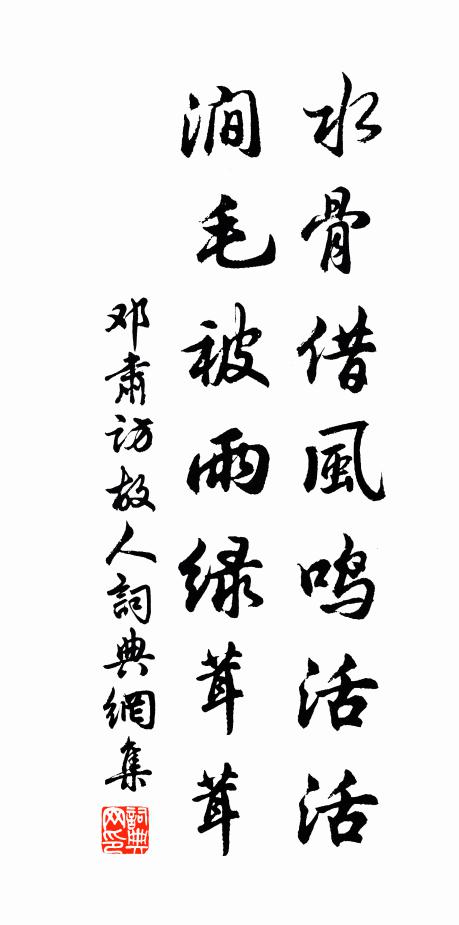 水骨借風鸣活活
澗毛被雨绿茸茸
邓肃访故人詞典網集
詞典网印